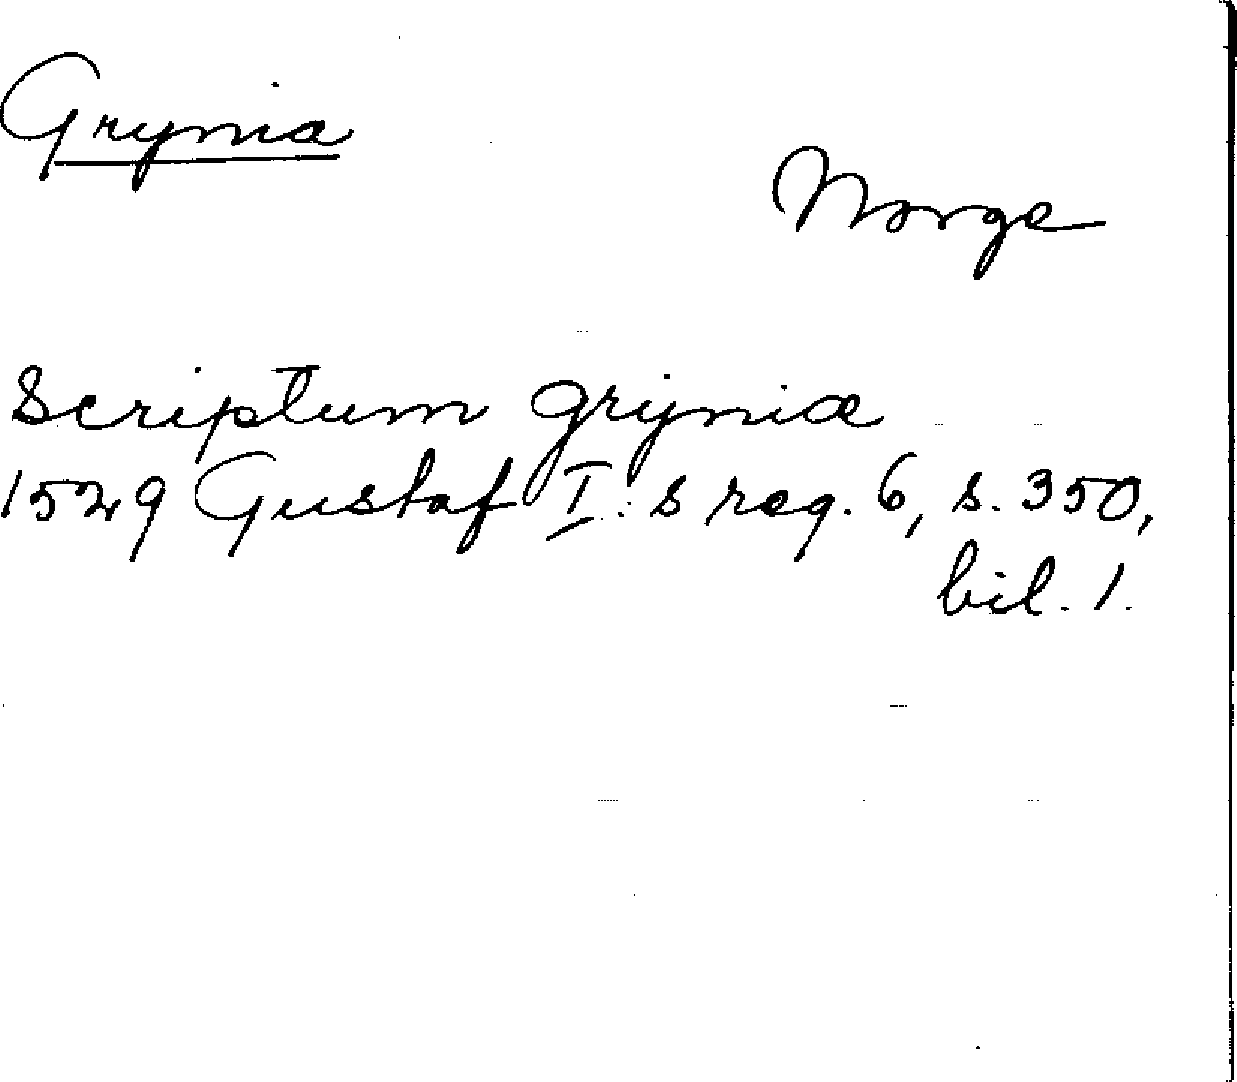 Grynia
Norge
Scriptum grijniæ
1529 Gustaf I:s reg. 6, s. 350,
bil. 1.